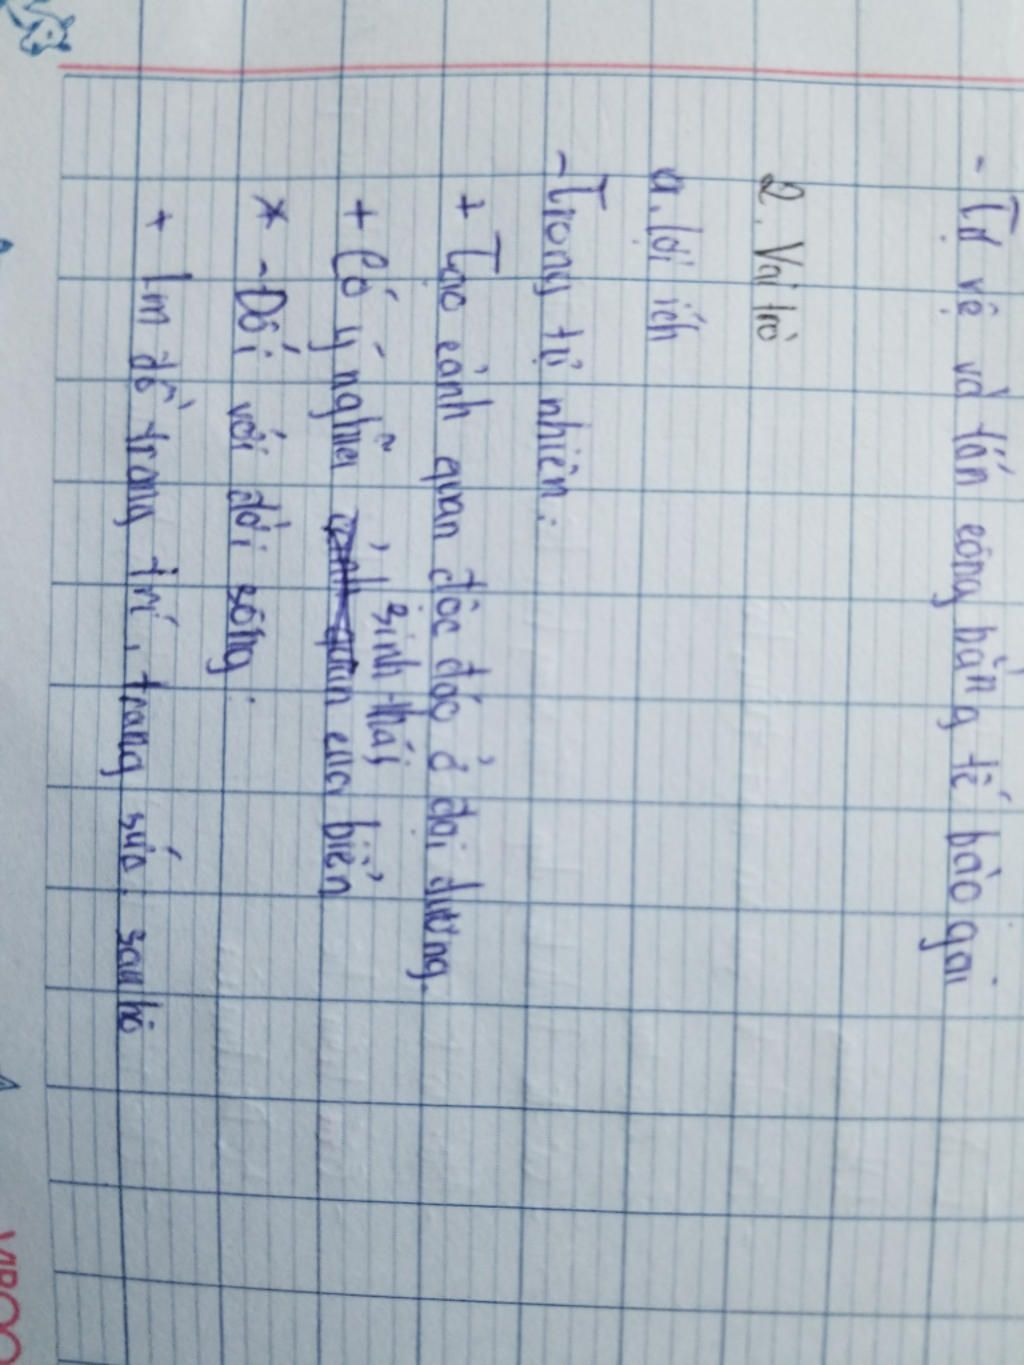 - Tự vệ và tấn công bằng tế bào gai
2. Vai trò
a. lợi ích
- Trong tự nhiên:
+ Tạo cảnh quan độc đáo ở đại dương.
+ Có ý nghĩa sinh thái của biển
* - Đối với đời sống:
+ lm đồ trang trí, trang sức: san hô